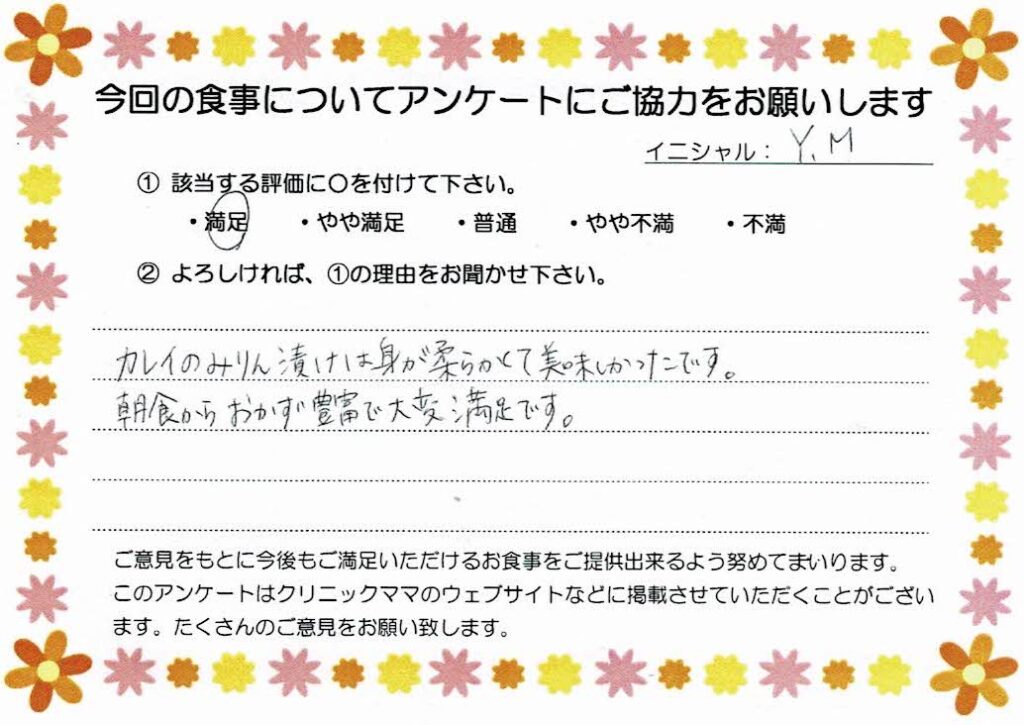 今回の食事についてアンケートにご協力をお願いします
イニシャル： Y.M
① 該当する評価に〇を付けて下さい。
・満足 ・やや満足 ・普通 ・やや不満 ・不満
② よろしければ、①の理由をお聞かせ下さい。
カレイのみりん漬けは身が柔らかくて美味しかったです。
朝食からおかず豊富で大変満足です。
ご意見をもとに今後もご満足いただけるお食事をご提供出来るよう努めてまいります。
このアンケートはクリニックママのウェブサイトなどに掲載させていただくことがござい
ます。たくさんのご意見をお願い致します。